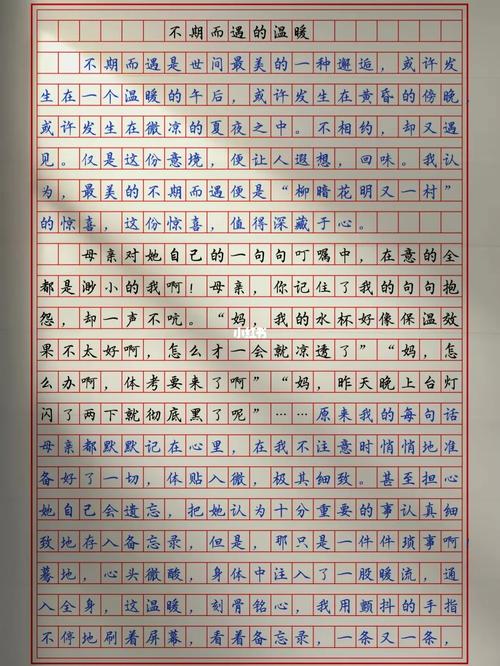 不期而遇的温暖
不期而遇是世间最美的一种邂逅，或许发
生在一个温暖的午后，或许发生在黄昏的傍晚，
或许发生在微凉的夏夜之中。不相约，却又遇
见。仅是这份意境，便让人遐想，回味。我认
为，最美的不期而遇便是“柳暗花明又一村”
的惊喜，这份惊喜，值得深藏于心。
母亲对她自己的一句句叮嘱中，在意的全
都是渺小的我啊！母亲，你记住了我的句句抱
怨，却一声不吭。“妈，我的水杯好像保温效
小红书
果不太好啊，怎么才一会就凉透了”“妈，怎
么办啊，体考要来了啊”“妈，昨天晚上台灯
闪了两下就彻底黑了呢”……原来我的每句话
母亲都默默记在心里，在我不注意时悄悄地准
备好了一切，体贴入微，极其细致。甚至担心
她自己会遗忘，把她认为十分重要的事认真细
致地存入备忘录，但是，那只是一件件琐事啊！
蓦地，心头微酸，身体中注入了一股暖流，通
入全身，这温暖，刻骨铭心，我用颤抖的手指
不停地刷着屏幕，看着备忘录，一条又一条，